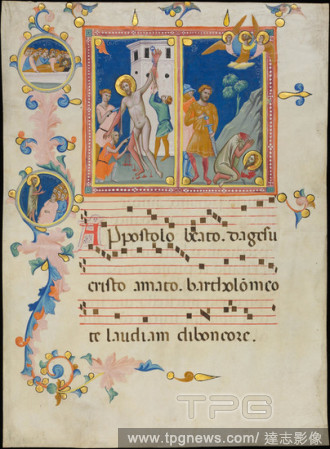 Appostolo beato. dagesu
cristo amato. bartholōmeo
te laudiam diboncore.
TPG
www.tpgnews.com/達志影像